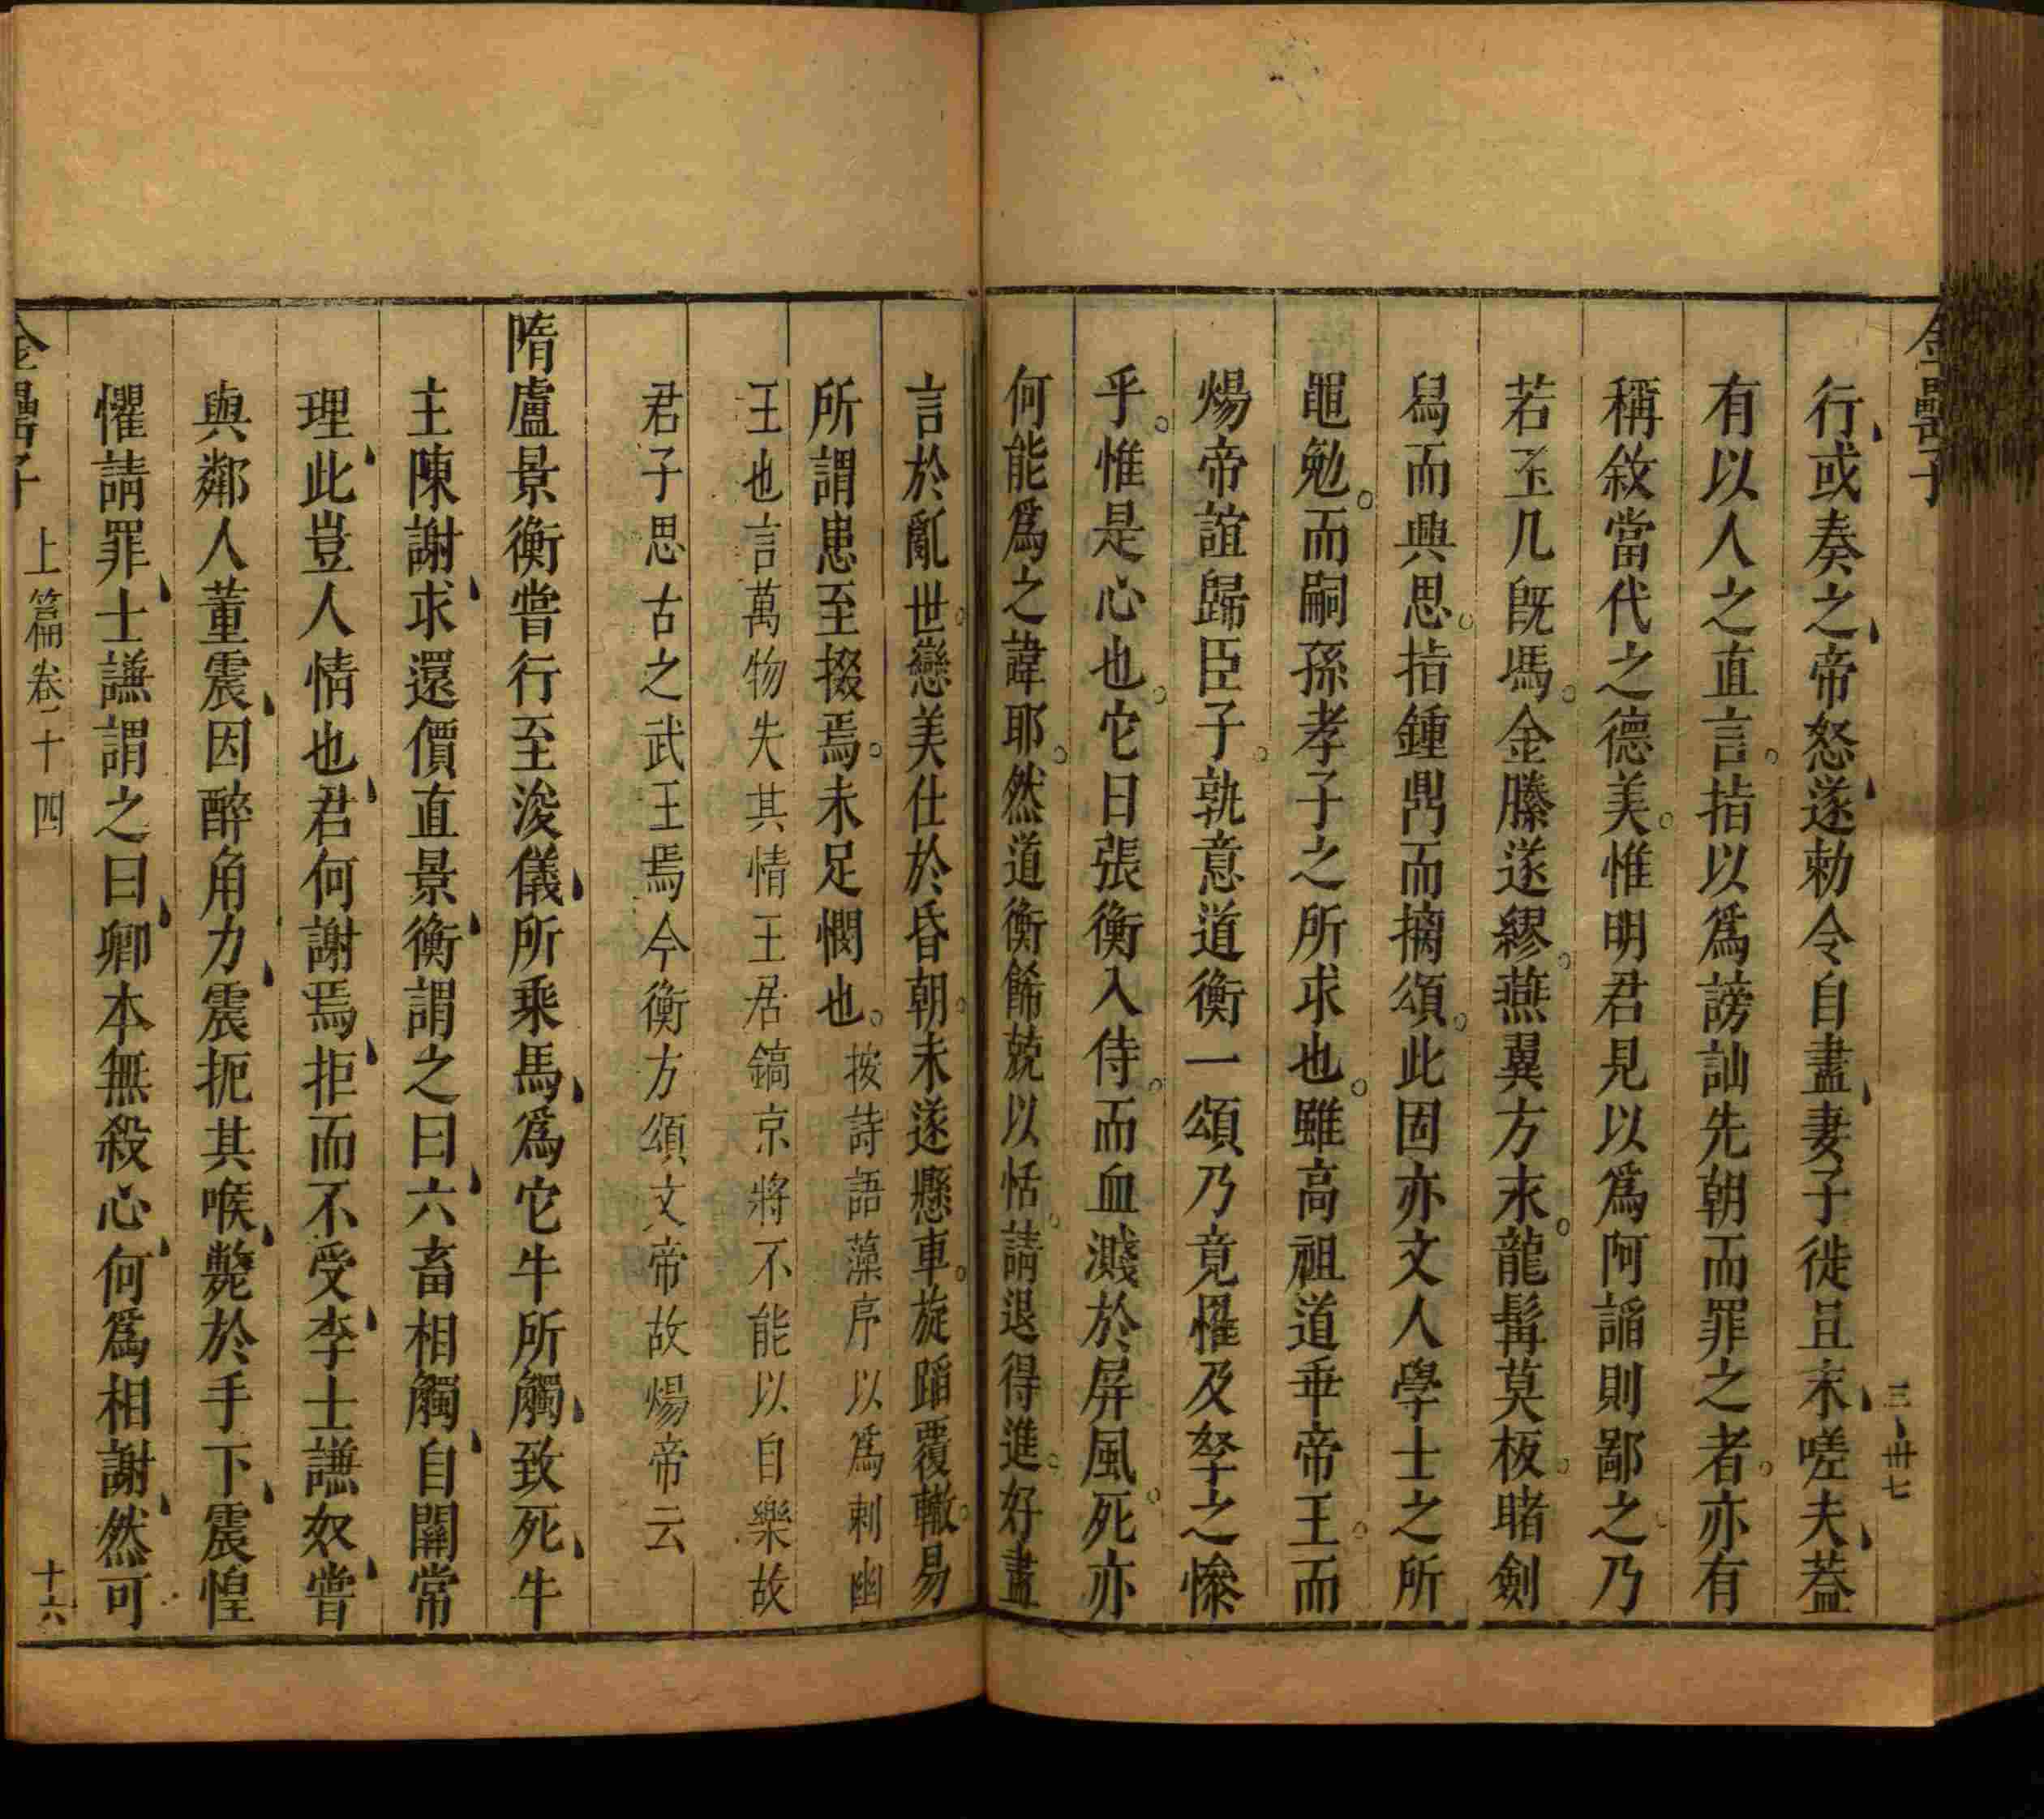 金罍子
三卅七
行或奏之帝怒遂勅令自盡妻子徙且末嗟夫葢
有以人之直言指以爲謗訕先朝而罪之者亦有
稱敘當代之德美惟明君見以爲阿謟則鄙之乃
若玉几旣馮金縢遂繆燕翼方末龍髯莫板睹劍
舃而興思指鍾鼎而摛頌此固亦文人學士之所
黽勉而嗣孫孝子之所求也雖高祖道乖帝王而
煬帝誼歸臣子孰意道衡一頌乃竟罹及孥之慘
乎惟是心也它日張衡入侍而血濺於屏風死亦
何能爲之諱耶然道衡餙兢以恬請退得進好盡
言於亂世戀美仕於昏朝未遂懸車旋蹈覆轍易
所謂患至掇焉未足憫也按詩語藻序以爲刺幽
王也言萬物失其情王居鎬京將不能以自樂故
君子思古之武王焉今衡方頌文帝故煬帝云
隋盧景衡嘗行至浚儀所乘馬爲它牛所觸致死牛
主陳謝求還價直景衡謂之曰六畜相觸自關常
理此豈人情也君何謝焉拒而不受李士謙奴嘗
與鄰人董震因醉角力震扼其喉斃於手下震惶
懼請罪士謙謂之曰卿本無殺心何爲相謝然可
金罍子
上篇卷十四
十六